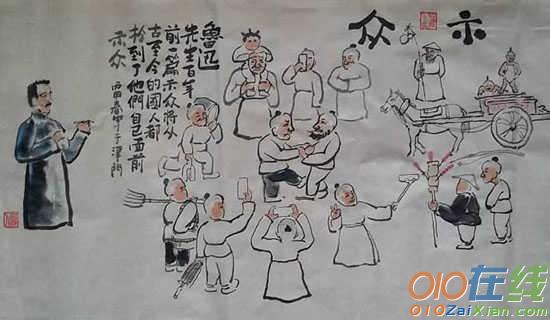 示众
魯迅
先生百年
前一篇示众将从
古至今的国人都
拎到了他們自己面前
示众
春于津門
010在线
010ZaiXian.com